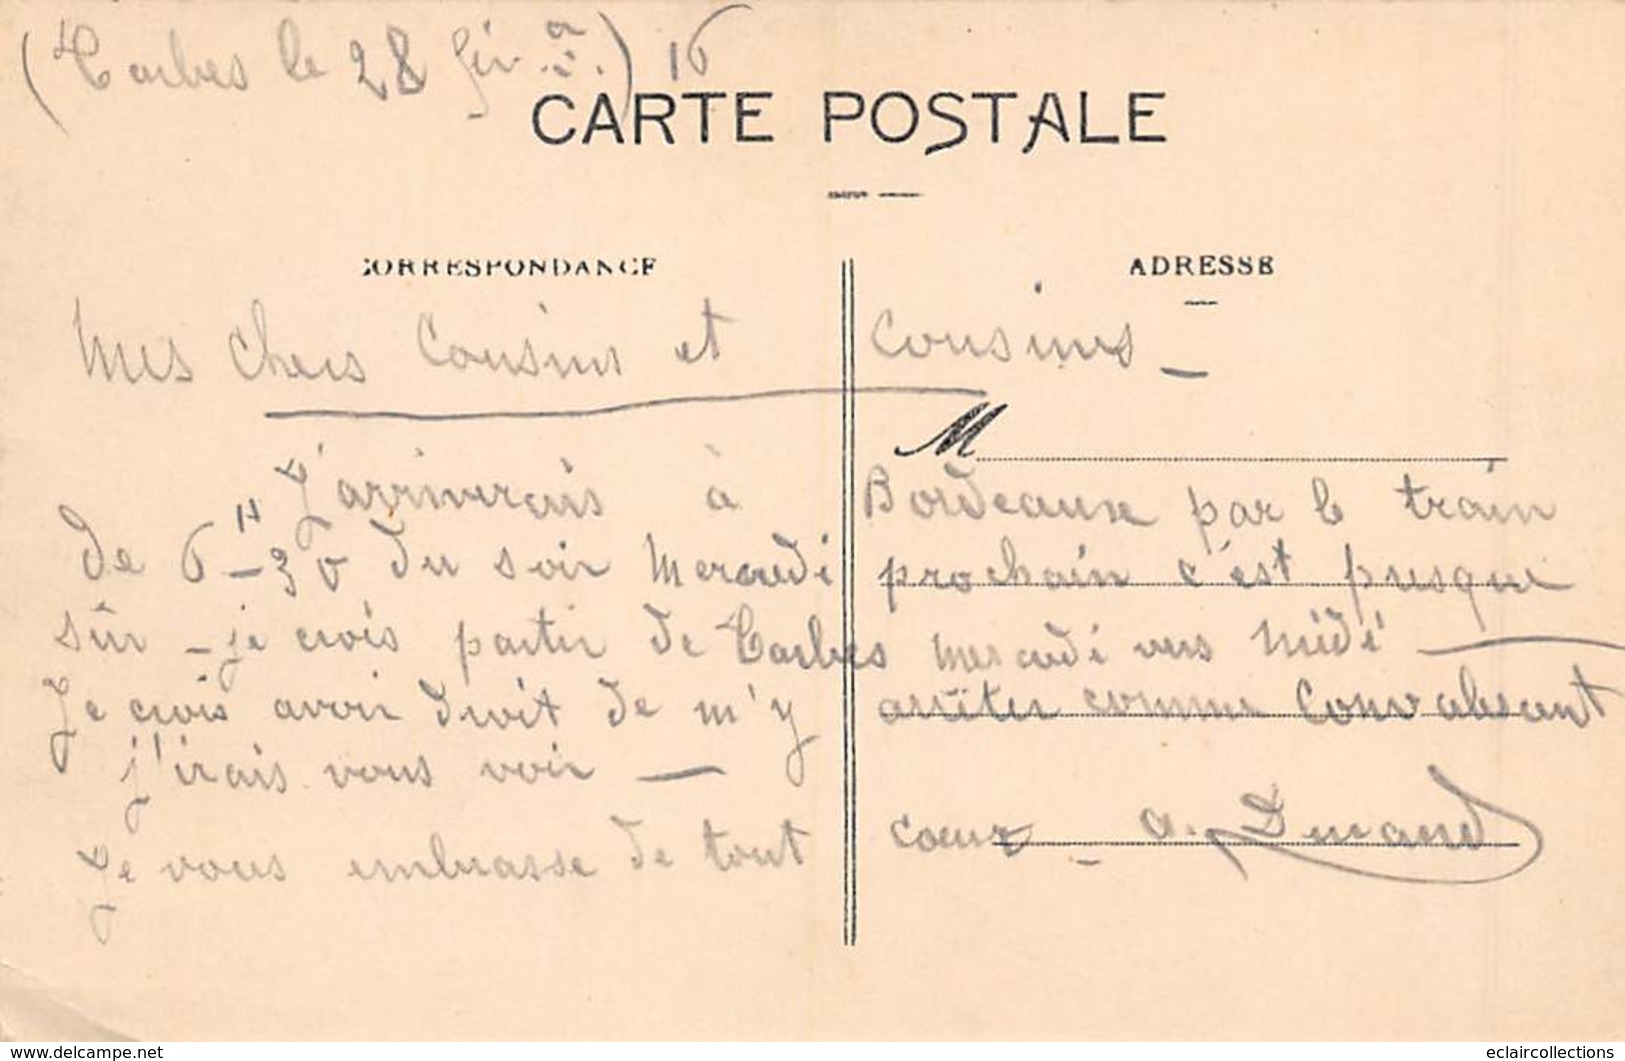 (Tarbes le 28 fév.) 16
CARTE POSTALE
CORRESPONDANCE
ADRESSE
Mes chers Cousins et Cousines _
M
J'arriverais à Bordeaux par le train
de 6 H - 30 du soir Mercredi prochain c'est presque
sûr - je crois partir de Tarbes mercredi vers Midi —
Je crois avoir droit de m'y arrêter comme Convalescent
j'irais vous voir —
Je vous embrasse de tout cœur _ A. Durand
www.delcampe.net
eclaircollections